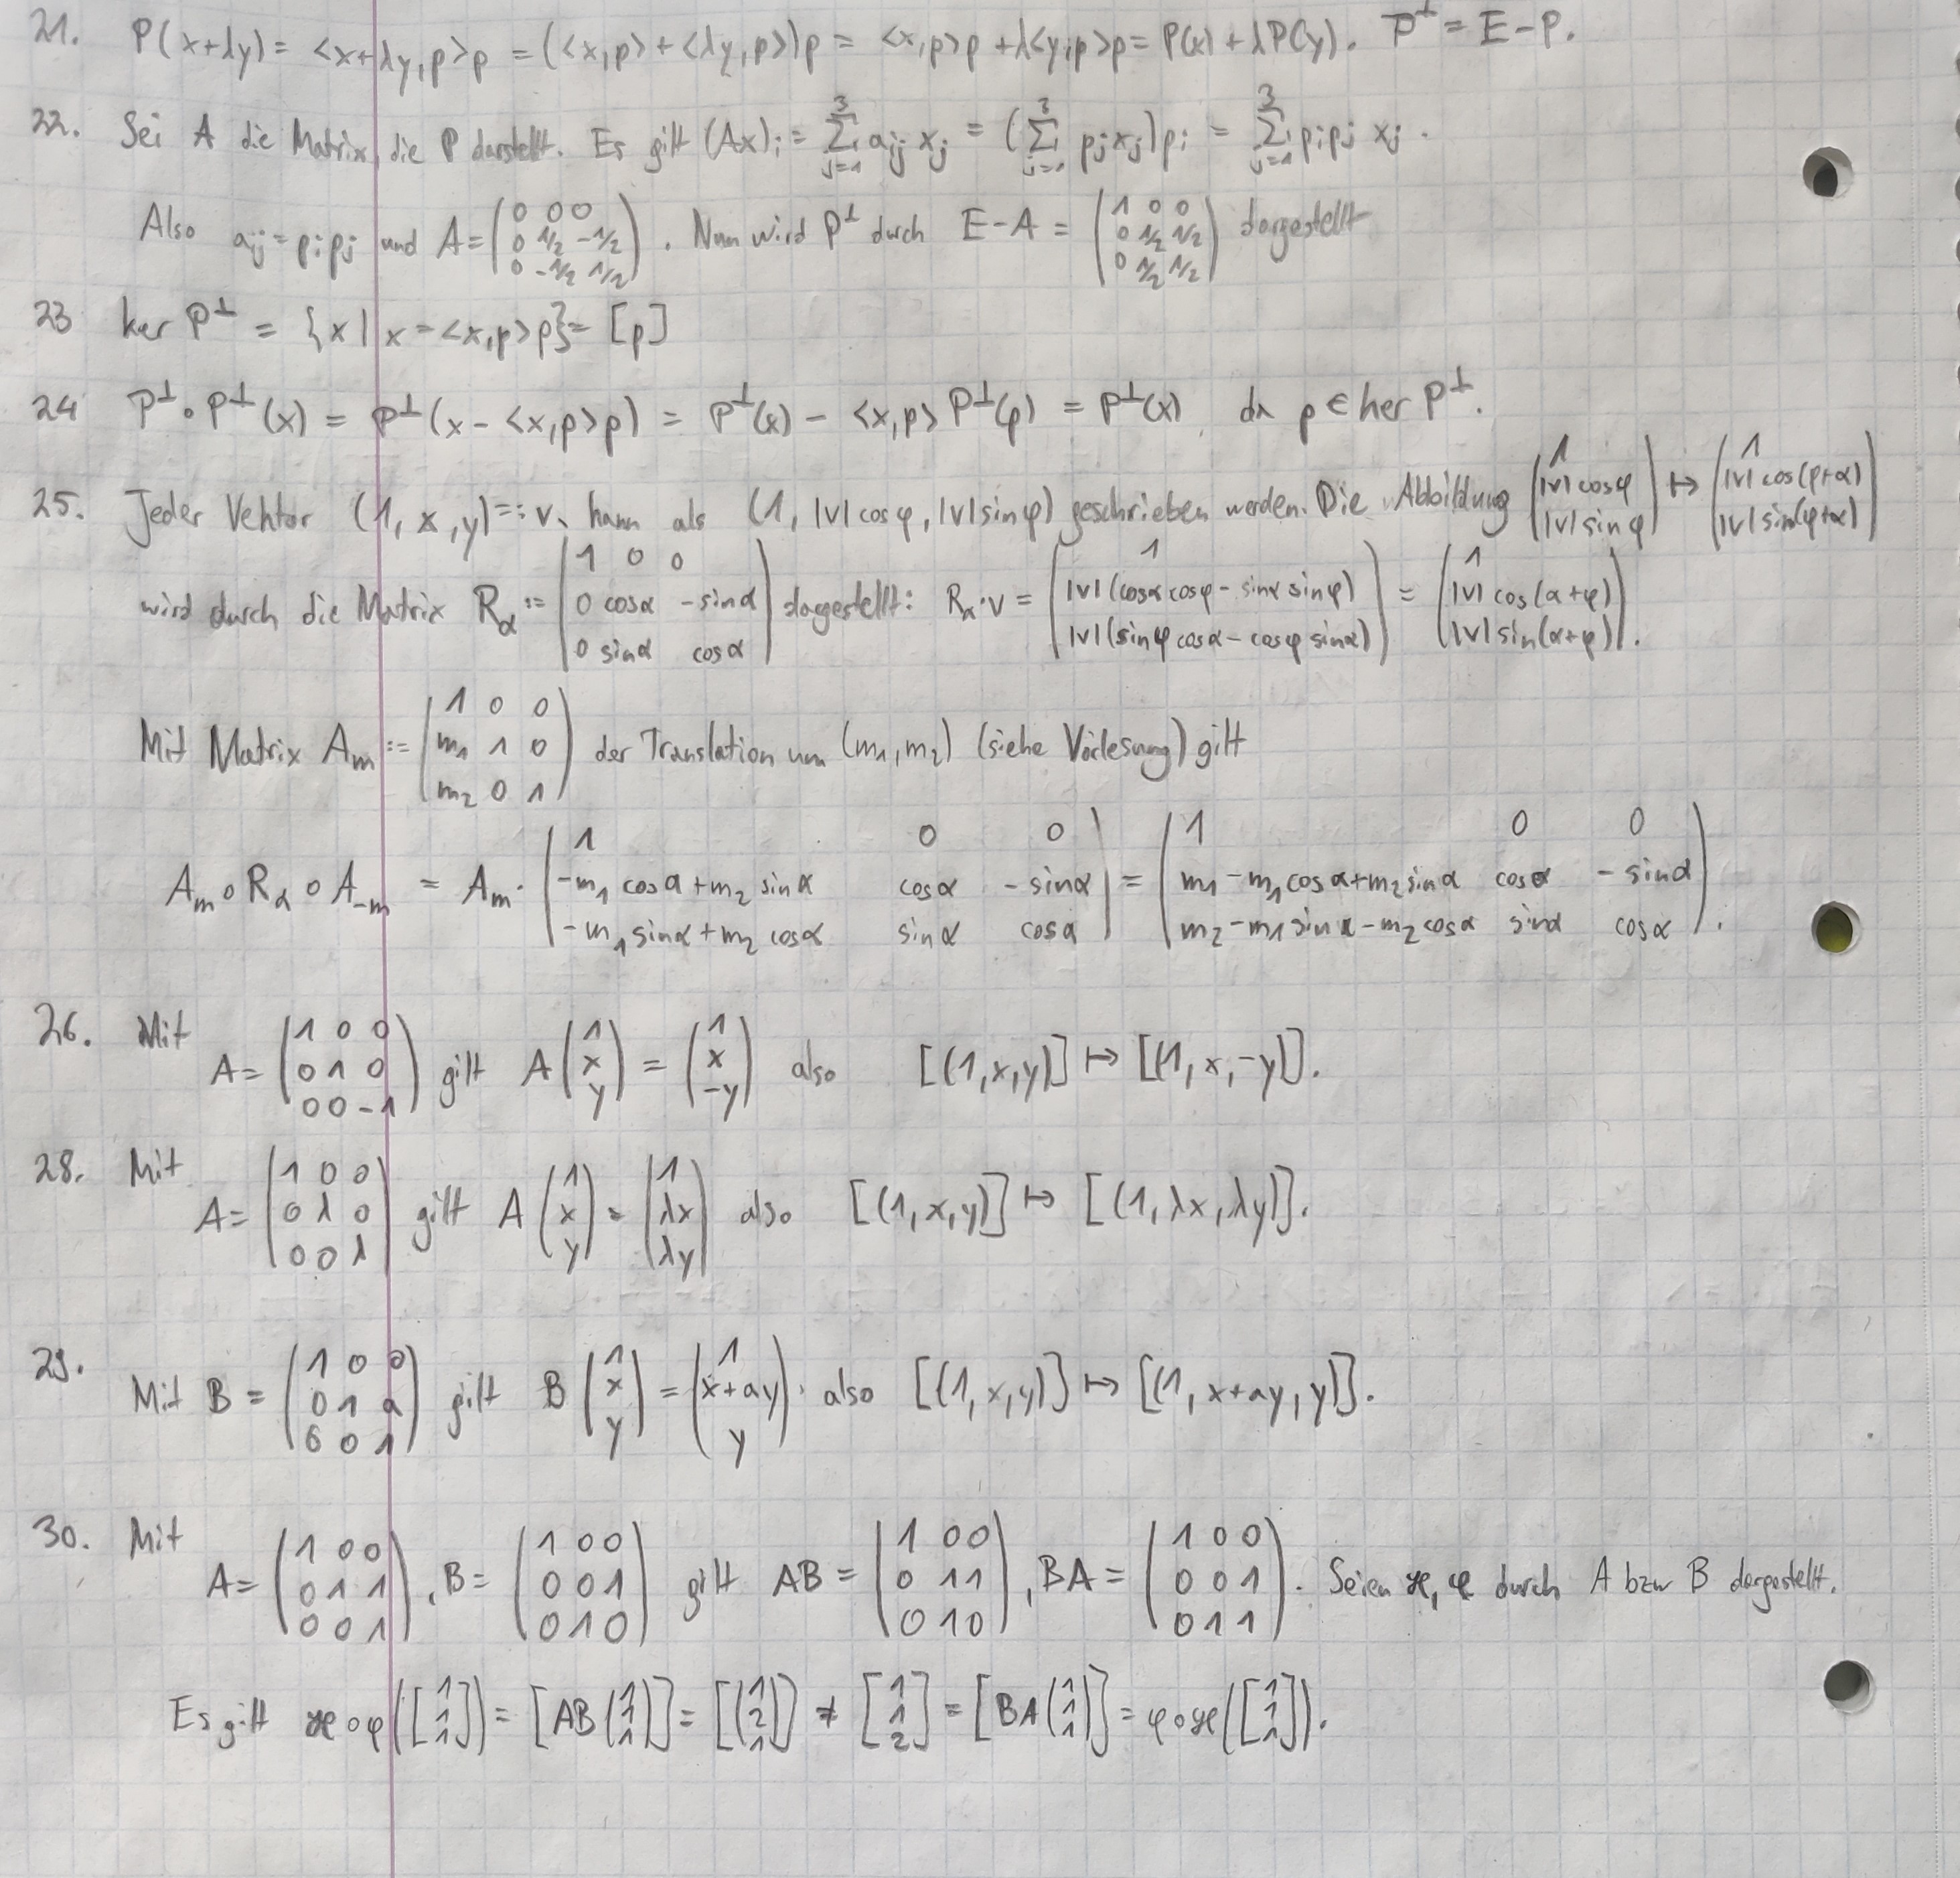 21. P(x+λy) = <x+λy,p>p = (<x,p> + <λy,p>)p = <x,p>p + λ<y,p>p = P(x) + λP(y). P^⊥ = E-P.
22. Sei A die Matrix, die P darstellt. Es gilt (Ax)_i = ∑_{j=1}^3 a_ij x_j = (∑_{j=1}^3 p_j x_j)p_i = ∑_{j=1}^3 p_i p_j x_j.
Also a_ij = p_i p_j und A = (0 0 0; 0 1/2 -1/2; 0 -1/2 1/2). Nun wird P^⊥ durch E-A = (1 0 0; 0 1/2 1/2; 0 1/2 1/2) dargestellt
23 ker P^⊥ = {x | x = <x,p>p} = [p]
24 P^⊥∘P^⊥(x) = P^⊥(x - <x,p>p) = P^⊥(x) - <x,p>P^⊥(p) = P^⊥(x), da p ∈ ker P^⊥.
25. Jeder Vektor (1, x, y) =: v, kann als (1, |v|cosφ, |v|sinφ) geschrieben werden. Die Abbildung (1; |v|cosφ; |v|sinφ) ↦ (1; |v|cos(φ+α); |v|sin(φ+α))
wird durch die Matrix R_α := (1 0 0; 0 cosα -sinα; 0 sinα cosα) dargestellt: R_α·v = (1; |v|(cosα cosφ - sinα sinφ); |v|(sinφ cosα - cosφ sinα)) = (1; |v|cos(α+φ); |v|sin(α+φ)).
Mit Matrix A_m := (1 0 0; m_1 1 0; m_2 0 1) der Translation um (m_1, m_2) (siehe Vorlesung) gilt
A_m∘R_α∘A_-m = A_m · (1 0 0; -m_1 cosα+m_2 sinα cosα -sinα; -m_1 sinα+m_2 cosα sinα cosα) = (1 0 0; m_1-m_1cosα+m_2sinα cosα -sinα; m_2-m_1sinα-m_2cosα sinα cosα).
26. Mit A = (1 0 0; 0 1 0; 0 0 -1) gilt A(1; x; y) = (1; x; -y) also [(1,x,y)] ↦ [(1,x,-y)].
28. Mit A = (1 0 0; 0 λ 0; 0 0 λ) gilt A(1; x; y) = (1; λx; λy) also [(1,x,y)] ↦ [(1,λx,λy)].
29. Mit B = (1 0 0; 0 1 a; 0 0 1) gilt B(1; x; y) = (1; x+ay; y), also [(1,x,y)] ↦ [(1,x+ay,y)].
30. Mit A = (1 0 0; 0 1 1; 0 0 1), B = (1 0 0; 0 0 1; 0 1 0) gilt AB = (1 0 0; 0 1 1; 0 1 0), BA = (1 0 0; 0 0 1; 0 1 1). Seien ϰ, φ durch A bzw B dargestellt.
Es gilt ϰ∘φ([1; 1; 1]) = [AB(1; 1; 1)] = [(1; 2; 1)] ≠ [1; 1; 2] = [BA(1; 1; 1)] = φ∘ϰ([1; 1; 1]).